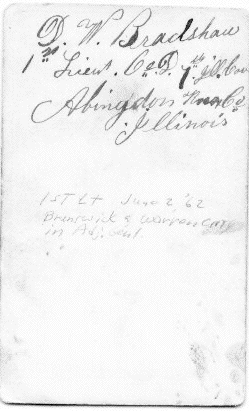 D. W. Bradshaw
1st Lieut. Co D. 7th Ill. Cav
Abingdon Knox Co
Illinois
1ST Lt June 2, '62
Brunswick & Warren Co
in Adj. Genl.